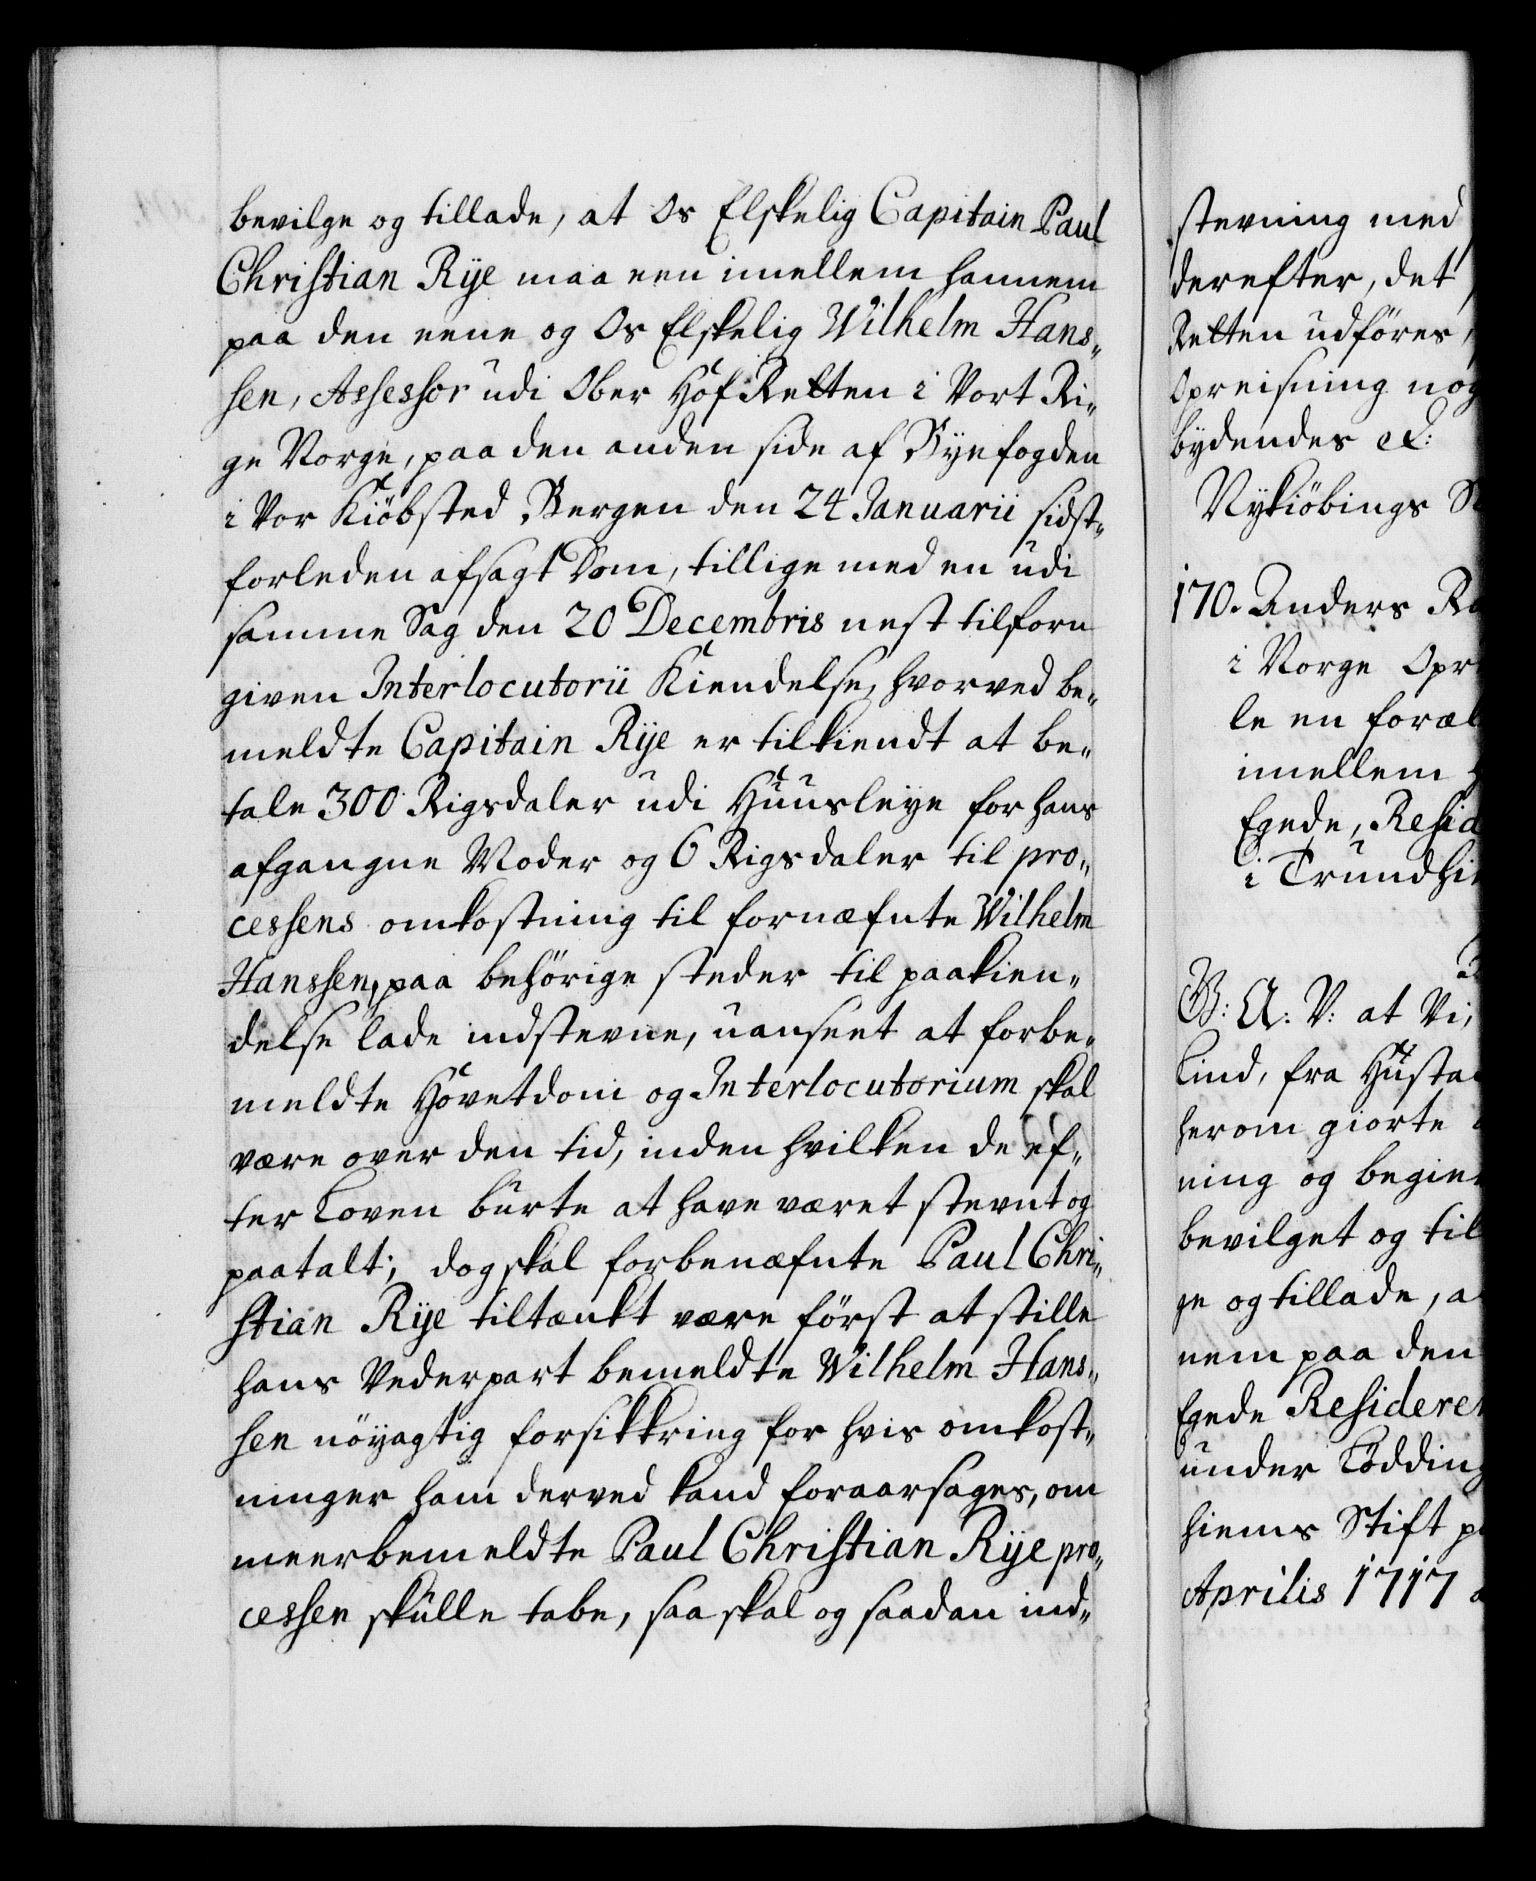 bevilge og tillade, at Os Elskelig Capitain Paul
Christian Rÿe maa een imellem hannem
paa den eene og Os Elskelig Wilhelm Hans„
sen, Assessor udi Ober Hof Retten i Vort Ri„
ge Norge, paa den anden side af Byefogden
i Vor Kiöbsted Bergen den 24 Januarii sidst„
forleden afsagt Dom, tillige med en udi
samme Sag den 20 Decembris nest tilforn
given Interlocutorii Kiendelse, hvorved be„
meldte Capitain Rÿe er tilkiendt at be„
tale 300 Rigsdaler udi Huusleye for hans
afgangne Moder og 6 Rigsdaler til pro„
cessens omkostning til fornæfnte Wilhelm
Hanssen, paa behörige steder til paakien„
delse lade indstevne, uanseet at forbe„
meldte Hovetdom og Interlocutorium skal
være over den tid, inden hvilken de ef„
ter Loven burte at have været stevnt og
paatalt; dog skal forbenæfnte Paul Chri„
stian Rÿe tiltænkt være först at stille
hans Vederpart bemeldte Wilhelm Hans„
sen nöyagtig forsikkring for hvis omkost„
ninger ham derved kand foraarsages, om
meerbemeldte Paul Christian Rÿe pro„
cessen skulle tabe, saa skal og saadan ind„
stevning med
derefter, det
Retten udföres,
Opreisning nog
bydendes etc:
Nykiöbings
170. Anders
i Norge Opr
le en foræl
imellem
Egede, Resid
i Trundhi
G: A: V: at Vi,
Lind, fra Husta
herom giorte
ning og begier
bevilget og til
ge og tillade, a
nem paa den
Egede Resideren
under Lödding
hiems Stift p
Aprilis 1717